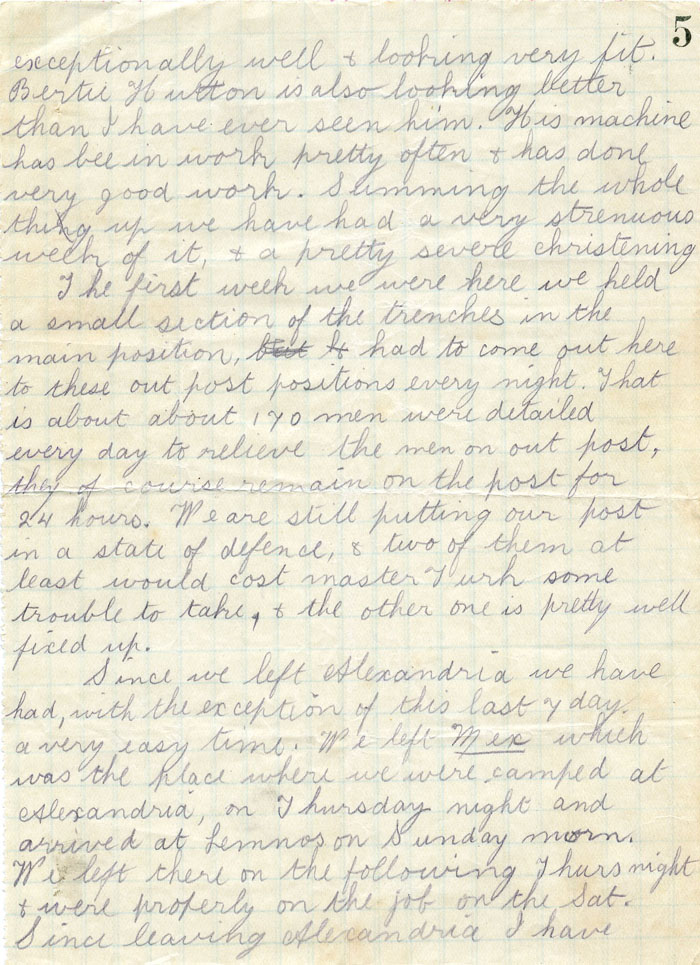 5
exceptionally well & looking very fit.
Bertie Hutton is also looking better
than I have ever seen him. His machine
has bee in work pretty often & has done
very good work. Summing the whole
thing up we have had a very strenuous
week of it, & a pretty severe christening
The first week we were here we held
a small section of the trenches in the
main position, but & had to come out here
to these out post positions every night. That
is about about 170 men were detailed
every day to relieve the men on out post,
they of course remain on the post for
24 hours. We are still putting our post
in a state of defence, & two of them at
least would cost master Turk some
trouble to take, & the other one is pretty well
fixed up.
Since we left Alexandria we have
had, with the exception of this last 7 day.
a very easy time. We left Mex which
was the place where we were camped at
Alexandria, on Thursday night and
arrived at Lemnos on Sunday morn.
We left there on the following Thurs night
& were properly on the job on the Sat.
Since leaving Alexandria I have